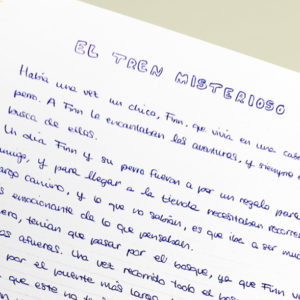 EL TREN MISTERIOSO
Había una vez un chico, Finn, que vivía en una cab
perro. A Finn le encantaban las aventuras, y siempre
busca de ellas.
Un día Finn y su perro fueron a por un regalo para
amigo, y para llegar a la tienda necesitaban recorrer
largo camino, y lo que no sabían, es que iba a ser much
s emocionante de lo que pensaban.
era, tenían que pasar por el bosque, ya que Finn v
las afueras. Una vez recorrido todo el bos
por el puente más largo
que este no